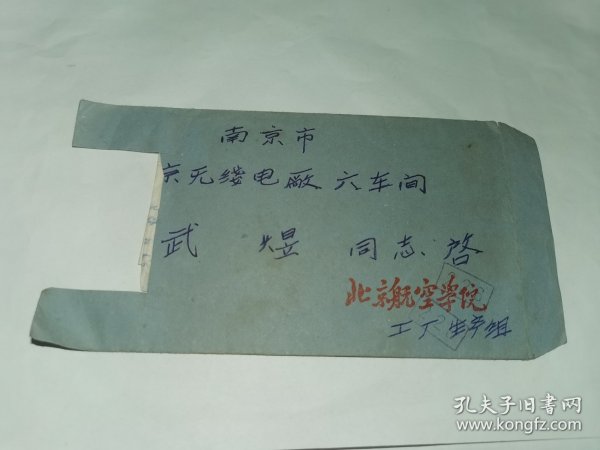 南京市
京无线电厰 六车间
武 煜 同志 啓
北京航空学院
工厂生产组
孔夫子旧书网
www.kongfz.com